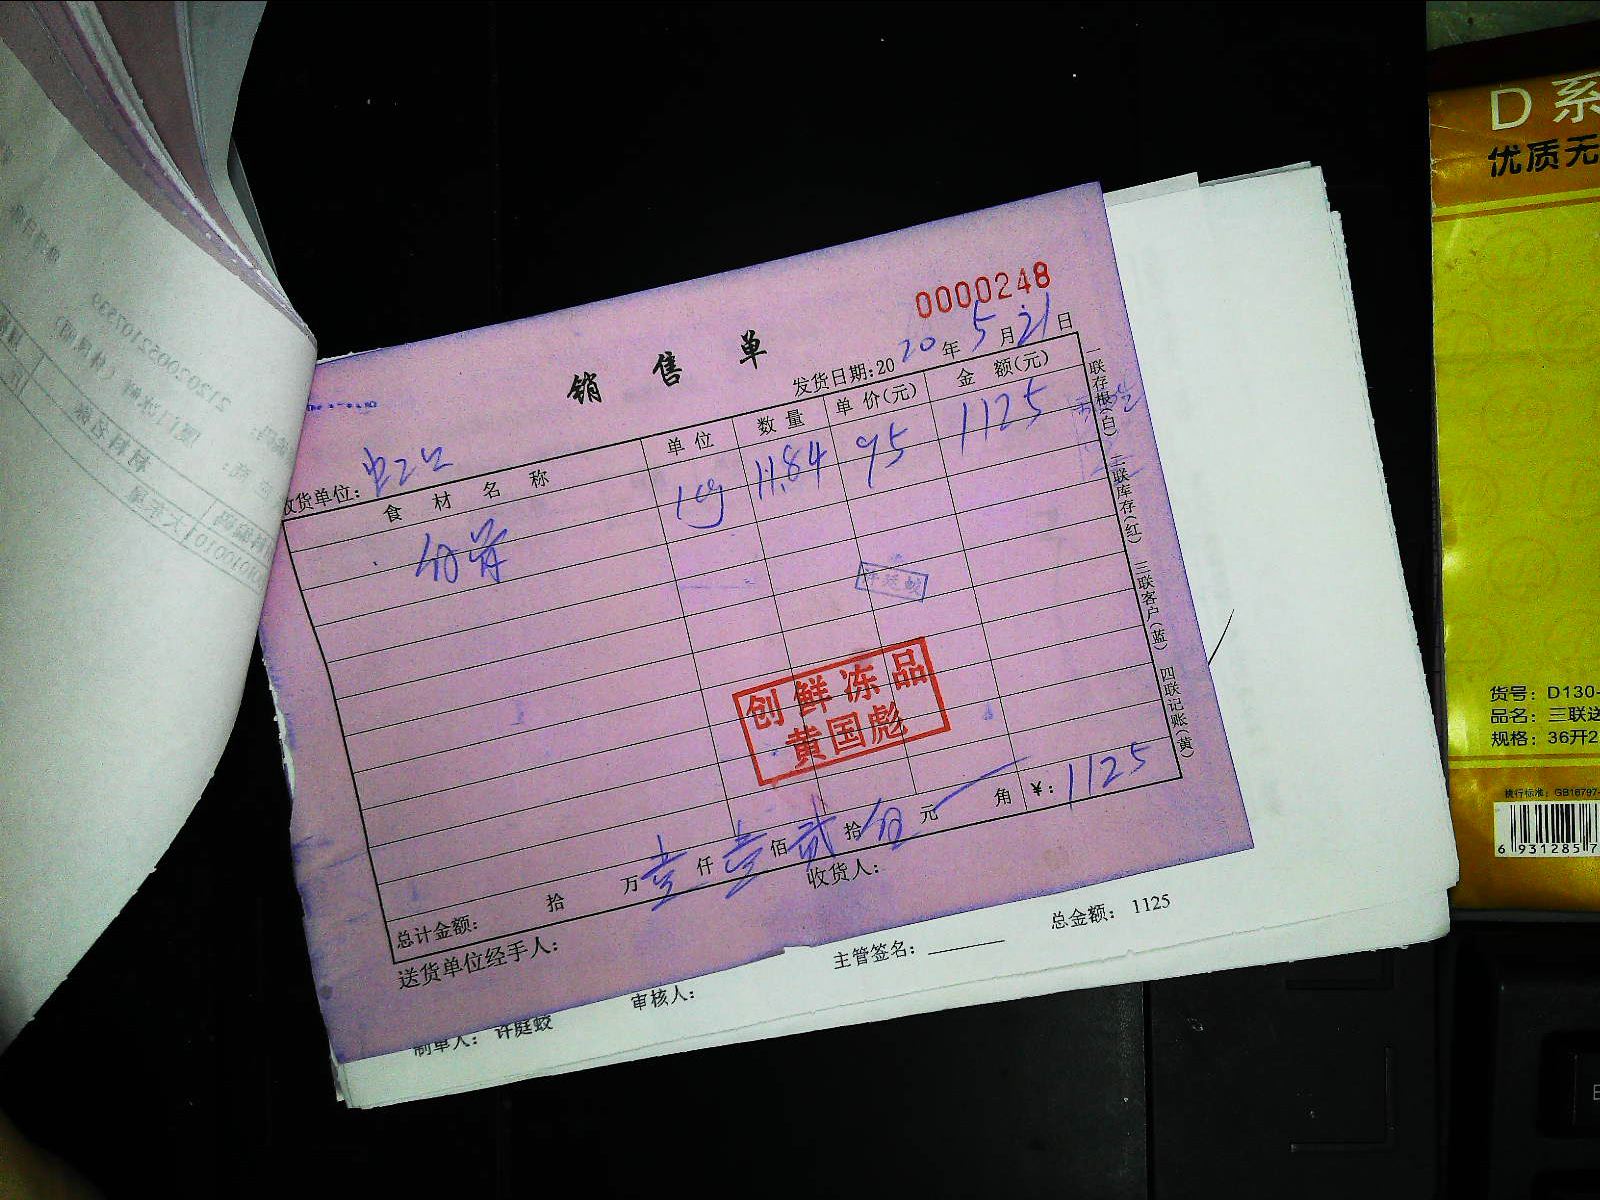 D 系
优质无
0000248
销售单
发货日期:2020年5月21日
收货单位:
食材名称 单位 数量 单价(元) 金额(元)
kg 11.84 95 1125
一联存根(白) 二联库存(红) 三联客户(蓝) 四联记账(黄)
创鲜冻品
黄国彪
总计金额: 拾 万壹仟壹佰贰拾伍元 角 ¥:1125
送货单位经手人: 收货人:
制单人: 许庭蛟 审核人: 主管签名: 总金额: 1125
货号: D130-
品名: 三联送
规格: 36开2
执行标准: GB16797-
6 931285 7